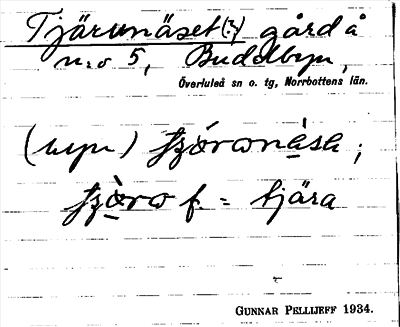 Tjärunäset(?) gård å
n:o 5, Buddbyn,
Överluleå sn o. tg, Norrbottens län.
(uyn)
f. = tjära
GUNNAR PELLIJEFF 1934.